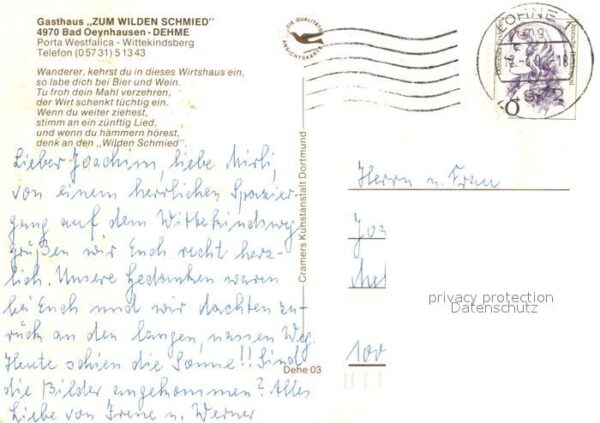 Gasthaus „ZUM WILDEN SCHMIED"
4970 Bad Oeynhausen - DEHME
Porta Westfalica - Wittekindsberg
Telefon (05731) 51343
Wanderer, kehrst du in dieses Wirtshaus ein,
so labe dich bei Bier und Wein.
Tu froh dein Mahl verzehren,
der Wirt schenkt tüchtig ein.
Wenn du weiter ziehest,
stimm an ein zünftig Lied,
und wenn du hämmern hörest,
denk an den „Wilden Schmied".
Lieber Joachim, liebe Mirli,
von einem herrlichen Spazier-
gang auf dem Wittekindsweg
grüßen wir Euch recht herz-
lich. Unsere Gedanken waren
bei Euch und wir dachten zu-
rück an den langen, nassen Weg.
Heute schien die Sonne!! Sind
die Bilder angekommen? Alles
Liebe von Irene u. Werner
DIE QUALITÄTS
ANSICHTSKARTE
Cramers Kunstanstalt Dortmund
Dehe 03
LÖHNE 1
4972
Herrn u. Frau
Joa
privacy protection
Datenschutz
100